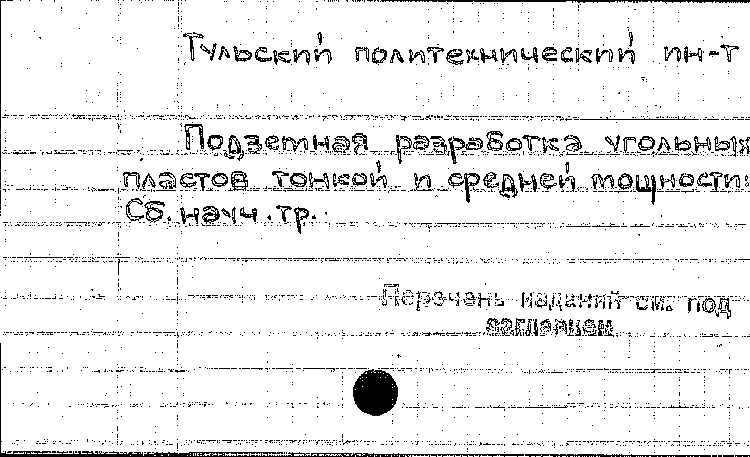 Тульский политехнический ин-т
Подземная разработка угольных
пластов тонкой и средней мощности:
Сб. науч. тр.
Перечень изданий см. под
заглавием